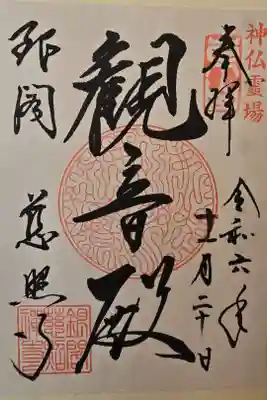 神仏霊場
奉拝
令和六年
十一月二十日
觀音殿
銀閣
慈照寺